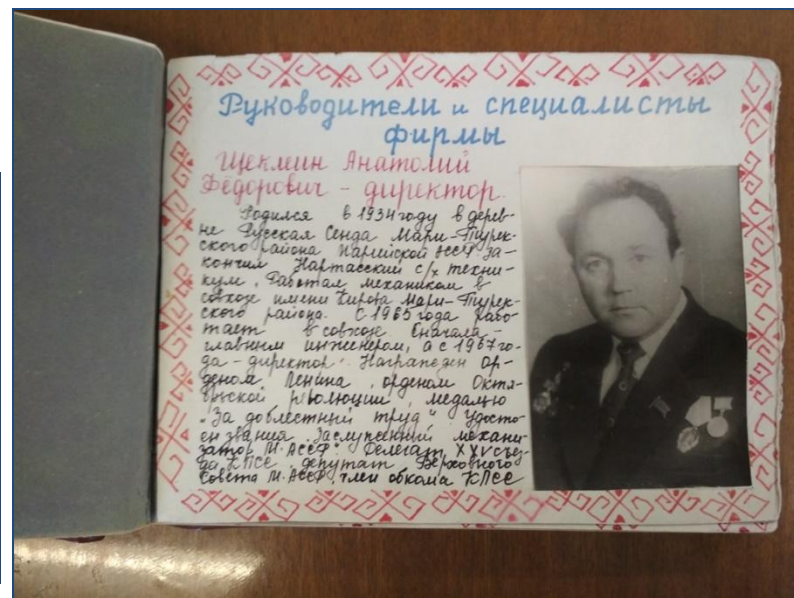 Руководители и специалисты
фирмы
Щеклеин Анатолий
Фёдорович - директор.
Родился в 1934 году в дерев-
не Русская Сенда Мари-Турек-
ского района Марийской АССР. За-
кончил Нартасский с/х техни-
кум. Работал механиком в
совхозе имени Кирова Мари-Турек-
ского района. С 1965 года рабо-
тает в совхозе сначала -
главным инженером, а с 1967 го-
да - директор. Награжден ор-
деном Ленина, орденом Октя-
брьской революции, медалью
"За доблестный труд". Удосто-
ен звания "Заслуженный механи-
затор М.АССР". Делегат XXV съез-
да КПСС, депутат Верховного
Совета М.АССР, член обкома КПСС